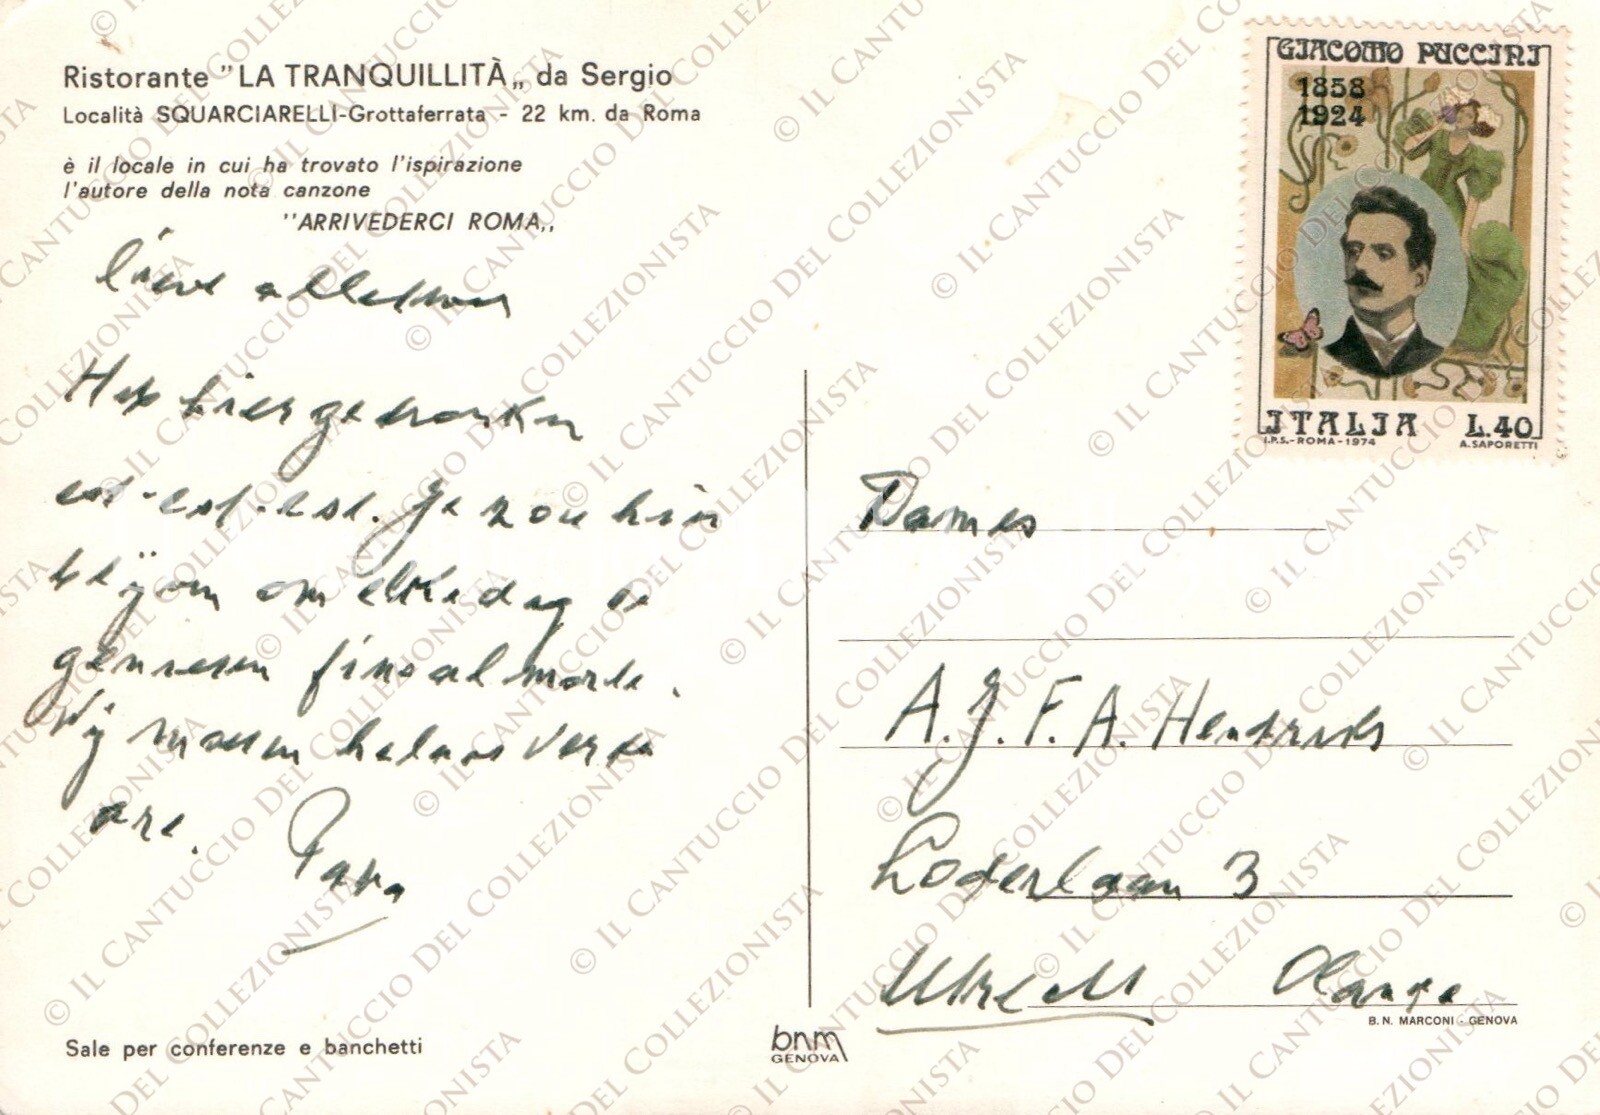 Ristorante "LA TRANQUILLITÀ„ da Sergio
Località SQUARCIARELLI-Grottaferrata - 22 km. da Roma
è il locale in cui ha trovato l'ispirazione
l'autore della nota canzone
"ARRIVEDERCI ROMA„
Lieve
Heb hier gedronken
est-est-est. Je zou hier
om elke dag te
genieten
Wij moeten helaas verde
Papa
Sale per conferenze e banchetti
bnm
GENOVA
GIACOMO PUCCINI
1858
1924
ITALIA L.40
I.P.S.-ROMA-1974 A. SAPORETTI
Dames
A.J.F.A. Hendriks
Loderlaan 3
Utrecht Olanda
B.N. MARCONI - GENOVA
© IL CANTUCCIO DEL COLLEZIONISTA